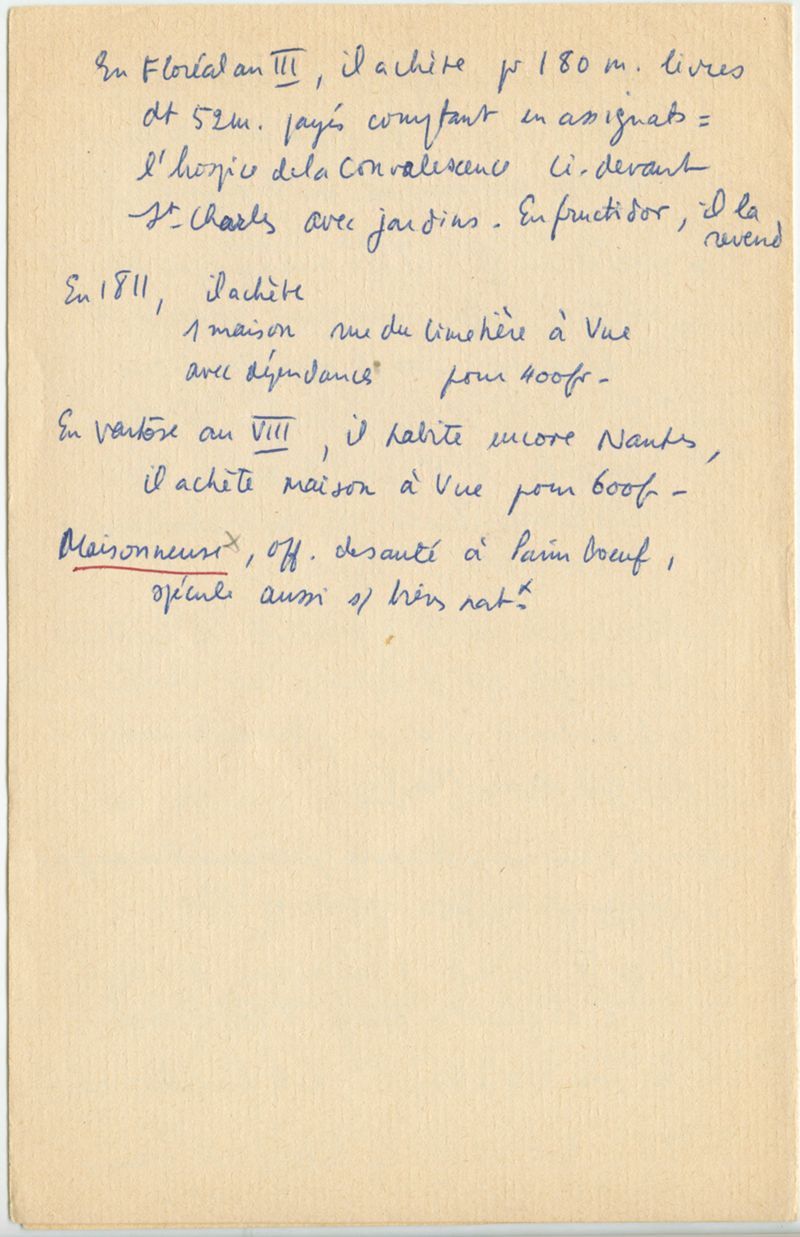 En Floréal an III, il achète pr 180 m. livres
dt 52m. payés comptant en assignats =
l'hospice de la Convalescence ci-devant
St-Charles avec jardins. En fructidor, il la
revend
En 1811, il achète
1 maison rue du Cimetière à Vue
avec dépendances pour 400fr -
En Ventôse an VIII, il habite encore Nantes,
il achète maison à Vue pour 600f -
Maisonneuve x, off. de santé à Paimboeuf,
spécule aussi s/ biens natx